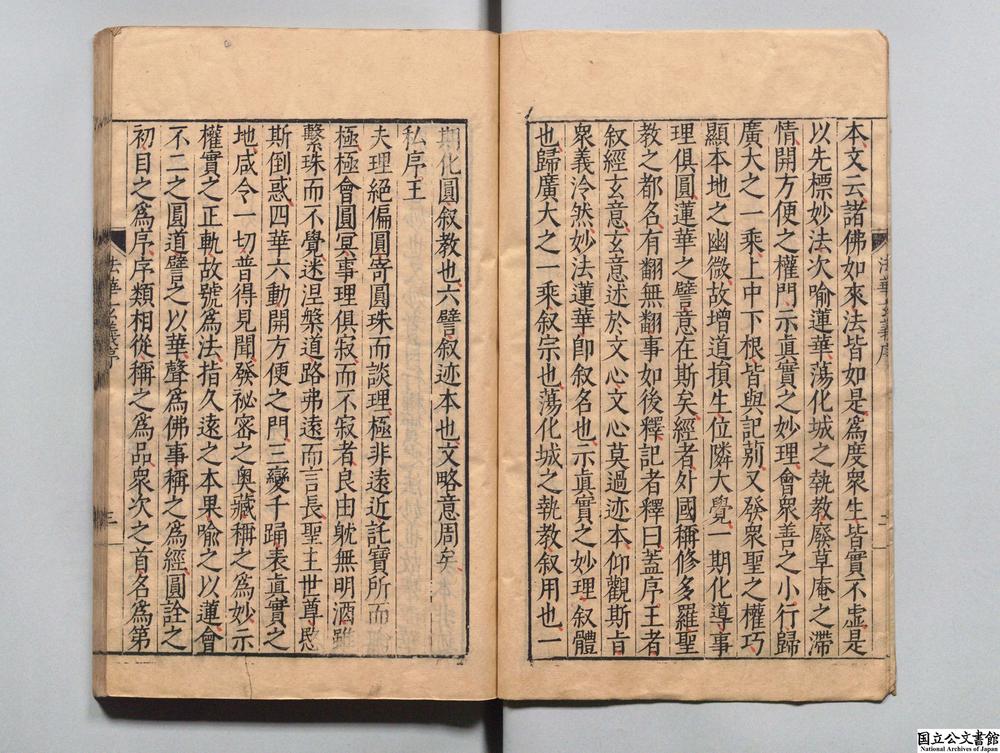 本文云諸佛如來法皆如是爲度衆生皆實不虛是
以先標妙法次喻蓮華蕩化城之執教廢草庵之滯
情開方便之權門示眞實之妙理會衆善之小行歸
廣大之一乘上中下根皆與記莂又發衆聖之權巧
顯本地之幽微故增道損生位隣大覺一期化導事
理俱圓蓮華之譬意在斯矣經者外國稱修多羅聖
教之都名有翻無翻事如後釋記者釋曰蓋序王者
叙經玄意玄意述於文心文心莫過迹本仰觀斯旨
衆義泠然妙法蓮華卽叙名也示眞實之妙理叙體
也歸廣大之一乘叙宗也蕩化城之執教叙用也一
法華玄義序
二
期化圓叙教也六譬叙迹本也文略意周矣
私序王
夫理絕偏圓寄圓珠而談理極非遠近託寶所而論
極極會圓冥事理俱寂而不寂者良由躭無明酒雖
繫珠而不覺迷涅槃道路弗遠而言長聖主世尊愍
斯倒惑四華六動開方便之門三變千踊表眞實之
地咸令一切普得見聞發祕密之奧藏稱之爲妙示
權實之正軌故號爲法指久遠之本果喻之以蓮會
不二之圓道譬之以華聲爲佛事稱之爲經圓詮之
初目之爲序序類相從稱之爲品衆次之首名爲第
法華玄義序
三
国立公文書館
National Archives of Japan